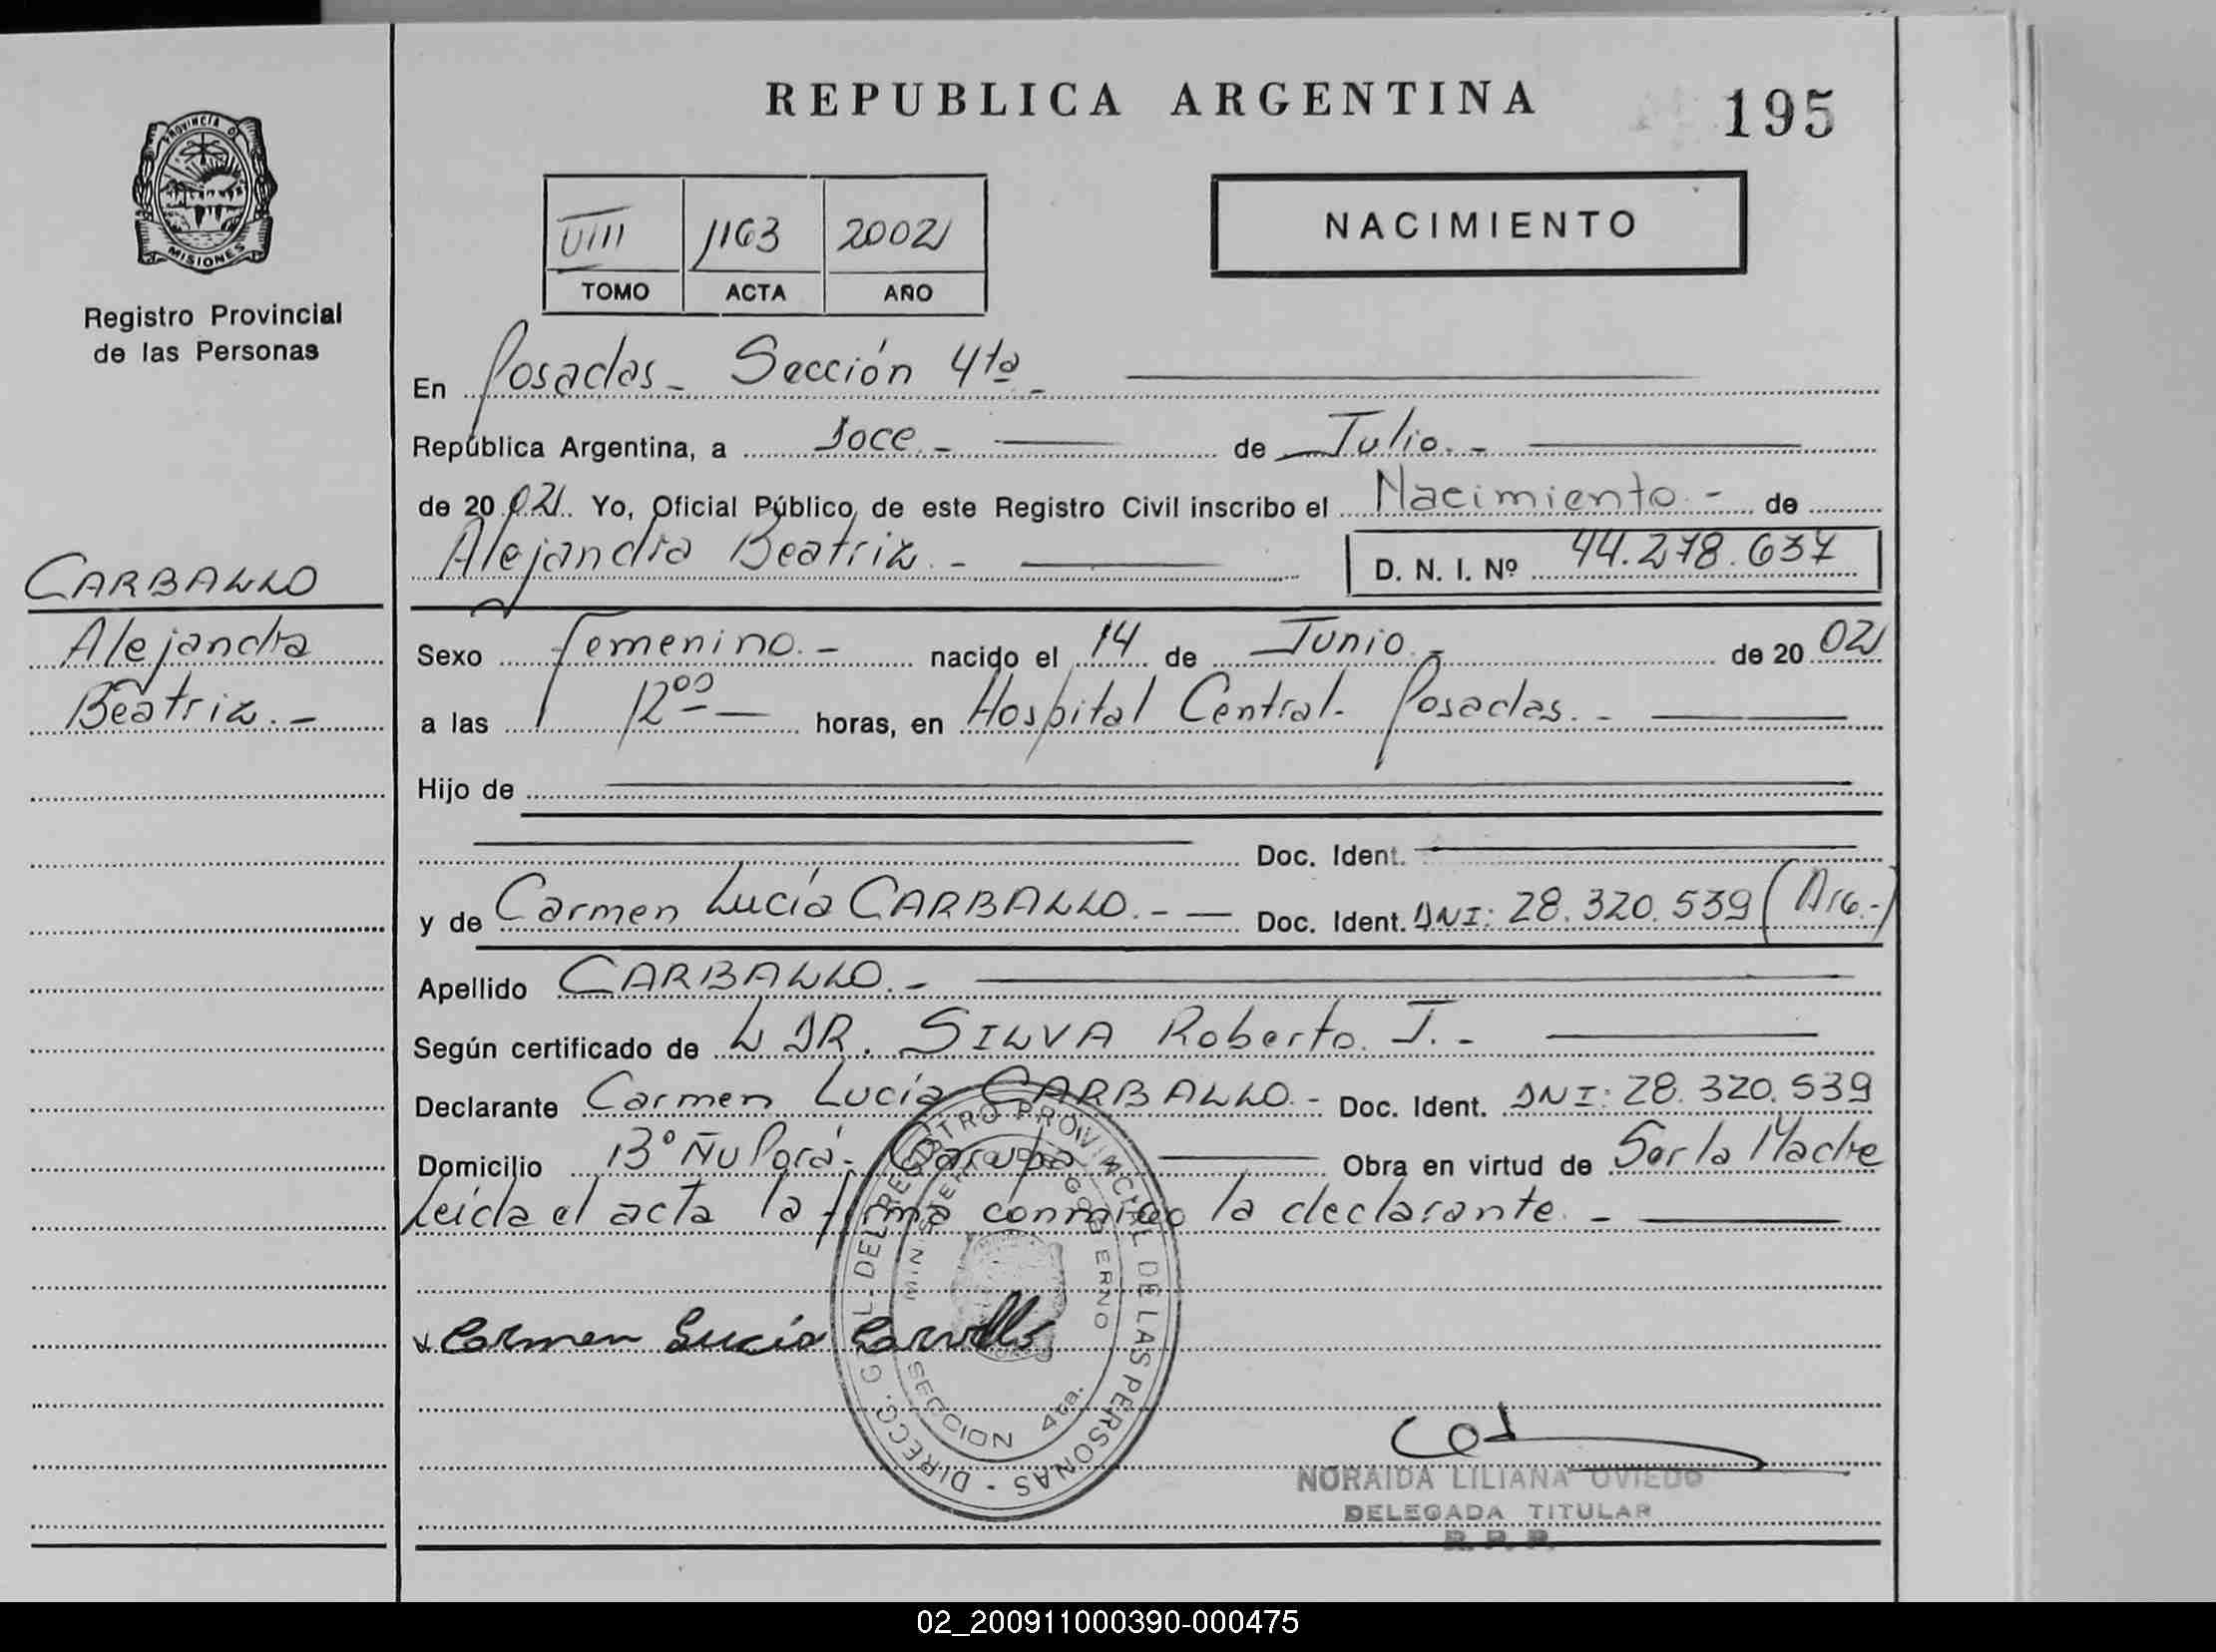 REPUBLICA ARGENTINA
195
PROVINCIA DE
MISIONES
Registro Provincial
de las Personas
VIII 1163 2002
TOMO ACTA AÑO
NACIMIENTO
En Posadas - Sección 4ta -
República Argentina, a Doce.- de Julio.-
de 20 02 Yo, Oficial Público de este Registro Civil inscribo el Nacimiento.- de
Alejandra Beatriz.- D. N. I. Nº 44.278.637
CARBALLO
Alejandra
Beatriz.-
Sexo Femenino.- nacido el 14 de Junio.- de 20 02
a las 12⁰⁰ — horas, en Hospital Central - Posadas.-
Hijo de
Doc. Ident.
y de Carmen Lucía CARBALLO.- Doc. Ident. DNI: 28.320.539 (Arg.-)
Apellido CARBALLO.-
Según certificado de L DR. SILVA Roberto. J.-
Declarante Carmen Lucía CARBALLO.- Doc. Ident. DNI: 28.320.539
Domicilio Bº Ñu Porá - Garupá Obra en virtud de Ser la Madre
Leída el acta la firma conmigo la declarante.-
DIRECC. GRAL. DEL REGISTRO PROVINCIAL DE LAS PERSONAS -
MINISTERIO DE GOBIERNO
SECCION 4ta.
Carmen Lucía Carvallo
NORAIDA LILIANA OVIEDO
DELEGADA TITULAR
R. P. P.
02_200911000390-000475